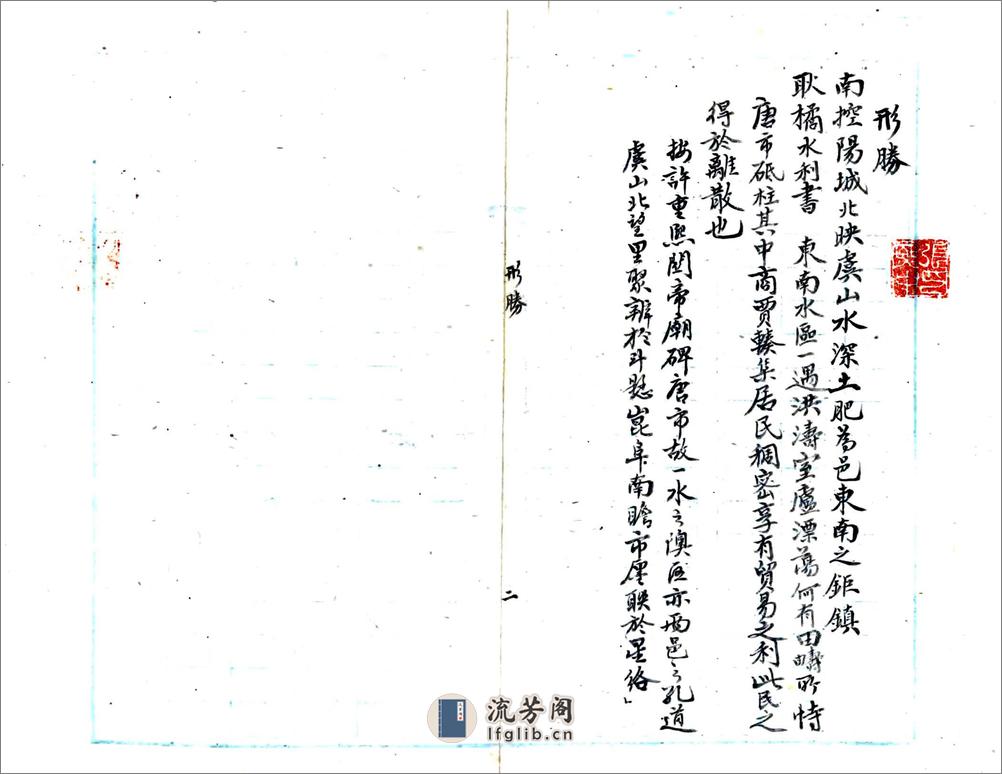 形勝
南控陽城北映虞山水深土肥為邑東南之鉅鎮
耿橘水利書 東南水區一遇洪濤室廬漂蕩何有田疇所恃
唐市砥柱其中商賈輳集居民稠密享有貿易之利此民之
得於離散也
按許重熙関帝廟碑唐市故一水之澳區亦兩邑之孔道
虞山北望里聚辨於斗懸崑阜南瞻市廛聯於星絡」
形勝
二
流芳阁
lfglib.cn